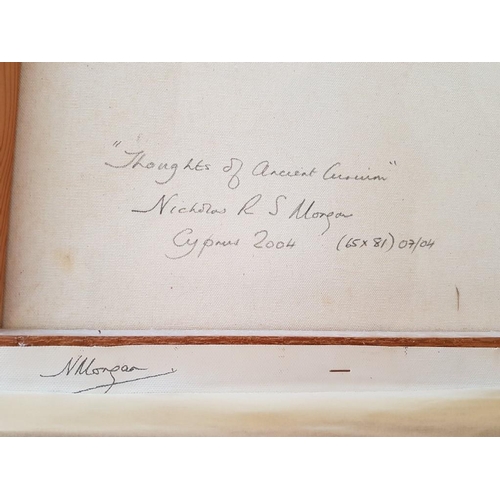 "Thoughts of Ancient Curium"
Nicholas R S Morgan
Cyprus 2004 (65x81) 07/04
NMorgan